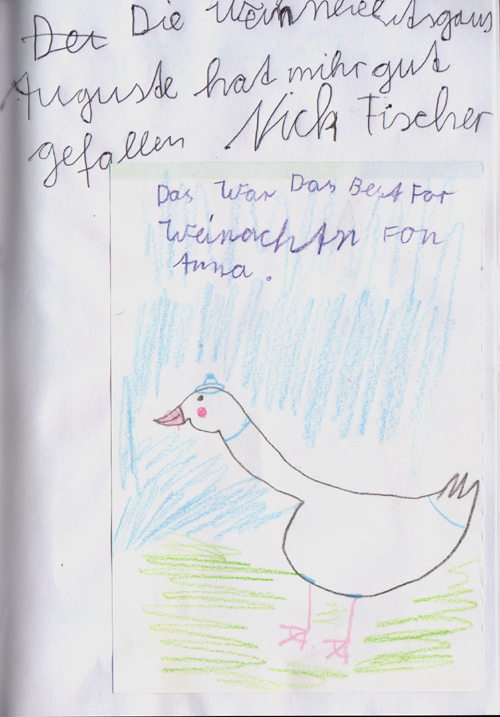 Der Die Weihnereitsgans
Auguste hat mihr gut
gefallen Nick Fischer
Das War Das Best For
Weinachtn Fon
Anna.